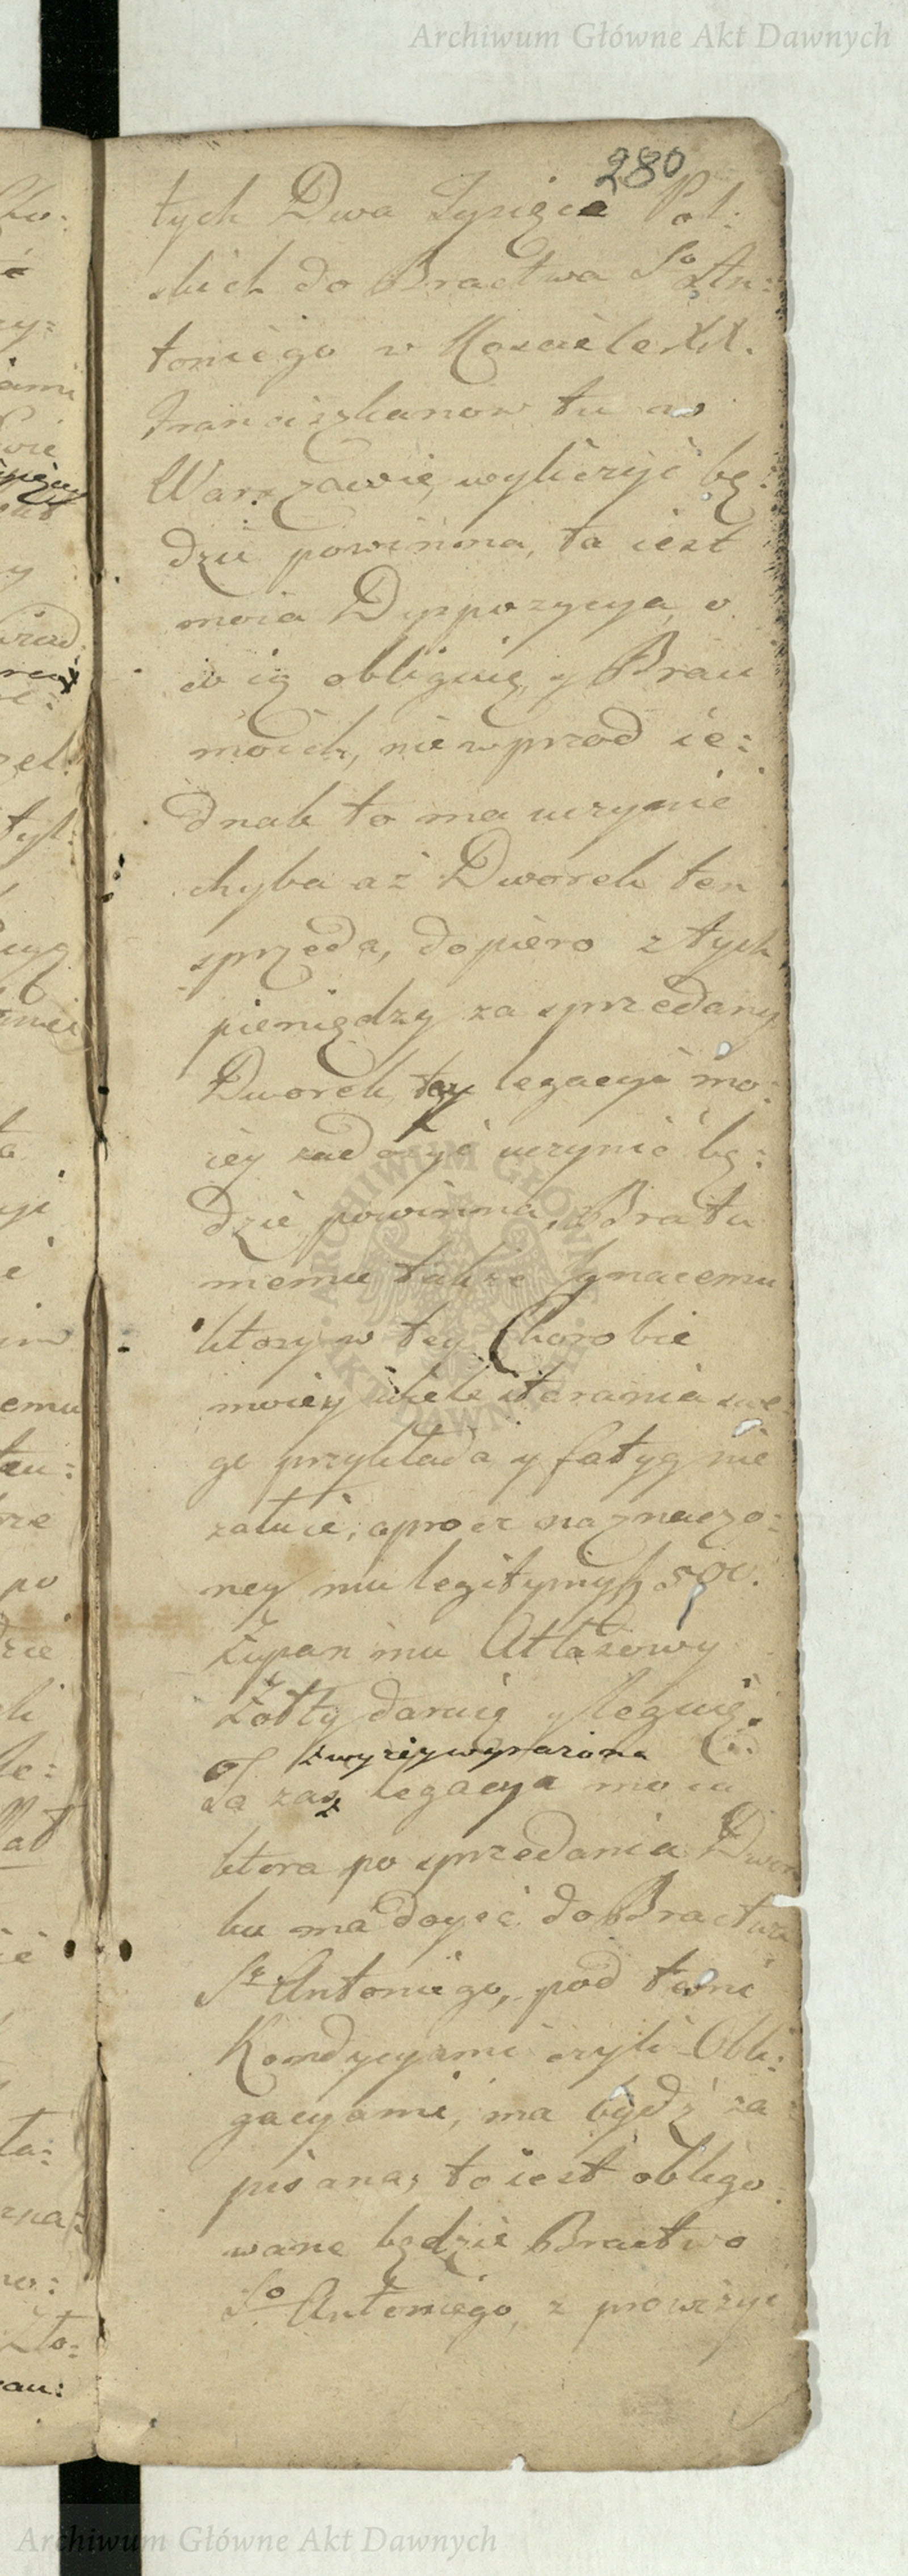 Archiwum Główne Akt Dawnych
280
tych Dwa Tysięce Pol:
skich do Bractwa So An:
toniego w Kosciele XX.
Franciszkanow tu w
Warszawie, wyliczyć bę:
dzie powinna, ta iest
moia Dyspozycya, o
w ią obliguię, y Braci
moich, nie wprzod ie:
dnak to ma uczynić
chyba aż Dworek ten
sprzeda, dopiero z tych
pieniędzy za sprzedany
Dworek tey legacyi mo:
iey zadosyć uczynić bę:
dzie powinna, Bratu
memu także Ignacemu
ktory w tey Chorobie
moiey wiele starania swe
go przykłada y fatyg nie
załuie, oprocz naznaczo:
ney mu legitymy 500.
Żupan mu Atłasowy
Żołty daruię y leguię.
zwyżeywyrażona
Ta zaś legacya moia
ktora po sprzedaniu Dwor
ku ma doyść do Bractwa
So Antoniego, pod temi
Kondycyami czyli Obli:
gacyami, ma bydź za
pisana, to iest obligo
wane będzie Bractwo
So Antoniego, z prowizyi
ARCHIWUM GŁÓWNE AKT DAWNYCH
Archiwum Główne Akt Dawnych